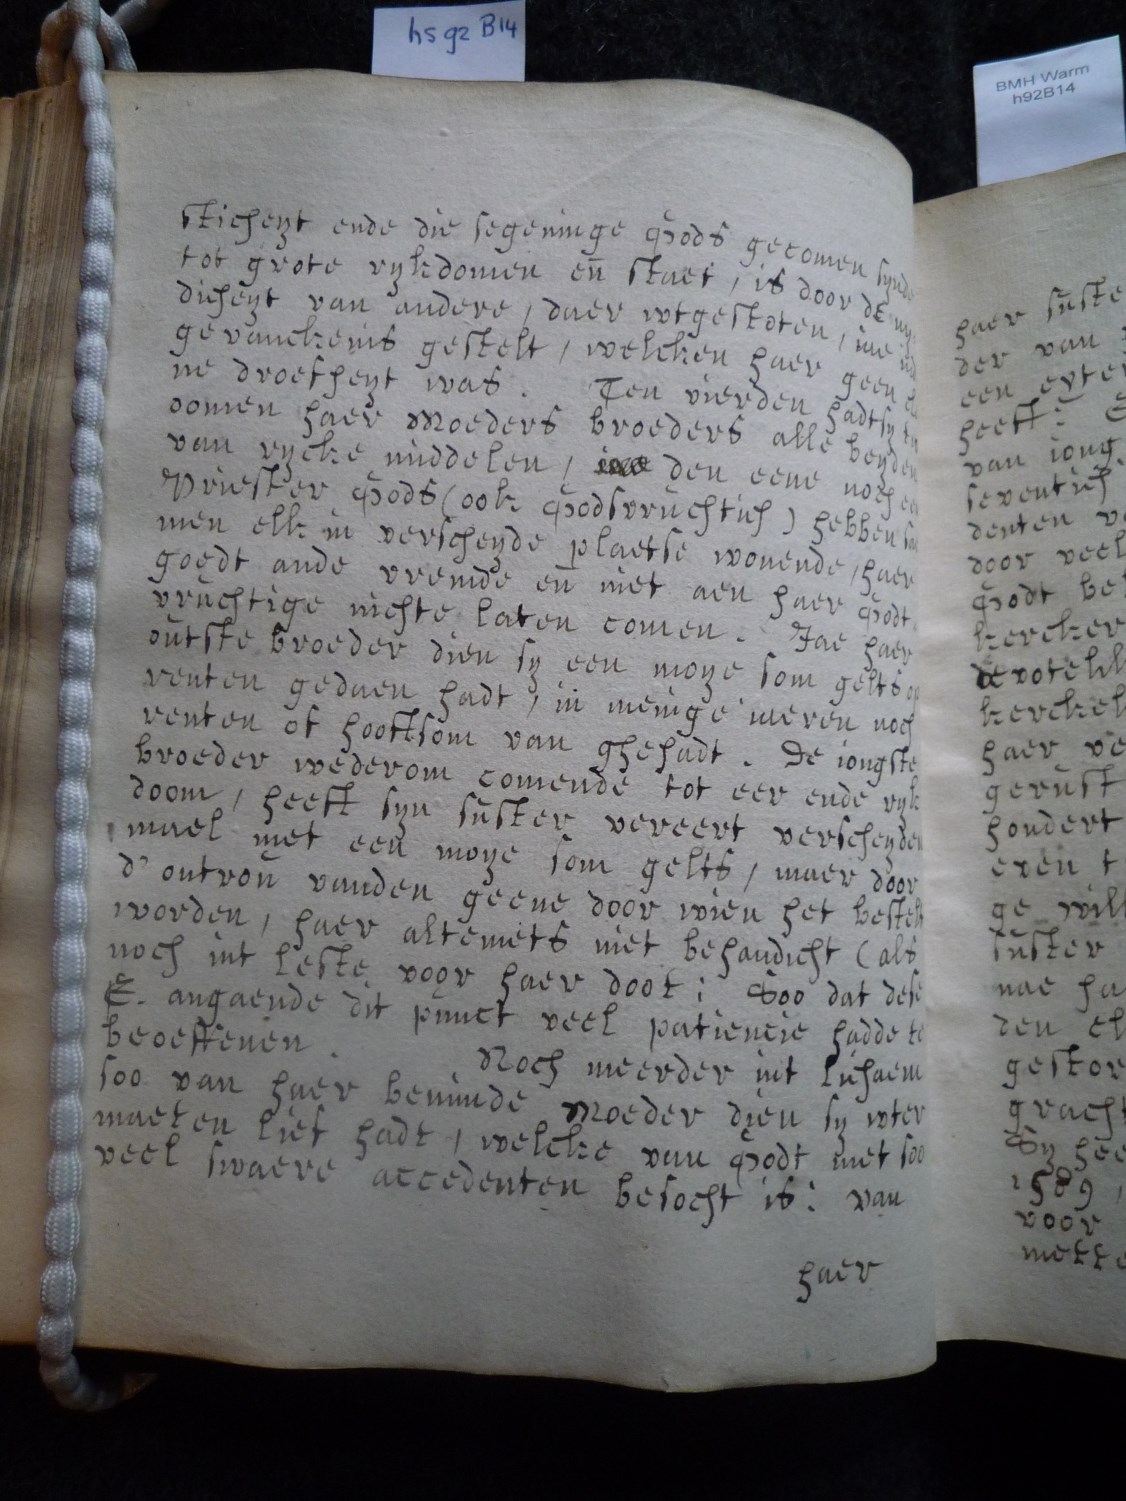 hs 92 B14
BMH Warm
h92B14
sticheyt ende die segeninge Gods gecomen synde
tot grote rykdomen en̄ staet, is door de ny
dicheyt van andere, daer wtgestoten, inne
gevanckenis gestelt, welcken haer geen
ne droefheyt was. Ten vierden hadt sy
oomen haer Moeders broeders alle beyden
van rycke middelen, den eene noch een
Priester Gods (ook Godsvruchtich) hebben sa
men elk in verscheyde plaetse wonende, haer
goedt ande vremde en̄ niet aen haer Godt
vruchtige nichte laten comen. Jae haer
outste broeder dien sy een moye som gelts op
renten gedaen hadt, in menige iaeren noch
renten of hooftsom van ghehadt. De iongste
broeder wederom comende tot eer ende ryk
doom, heeft syn suster vereert verscheyden
mael met een moye som gelts, maer door
d'ontrou vanden geene door wien het bestelt
worden, haer altemets niet behandicht (als
noch int leste voor haer doot: Soo dat dese
E. angaende dit punct veel patiencie hadde te
beoeffenen. Noch meerder int lichaem
soo van haer beminde Moeder dien sy wter
maeten lief hadt, welcke van Godt met soo
veel swaere accedenten besocht is: van
haer
haer suste
der van
een exter
heeft:
van iong
seventich
denten ve
door veel
Godt be
kercker
devotelik
kerckel
haer ve
gerust
hondert
exen t
ge will
suster
nae ha
den el
gestor
gracht
Sy hee
1589,
voor
mette